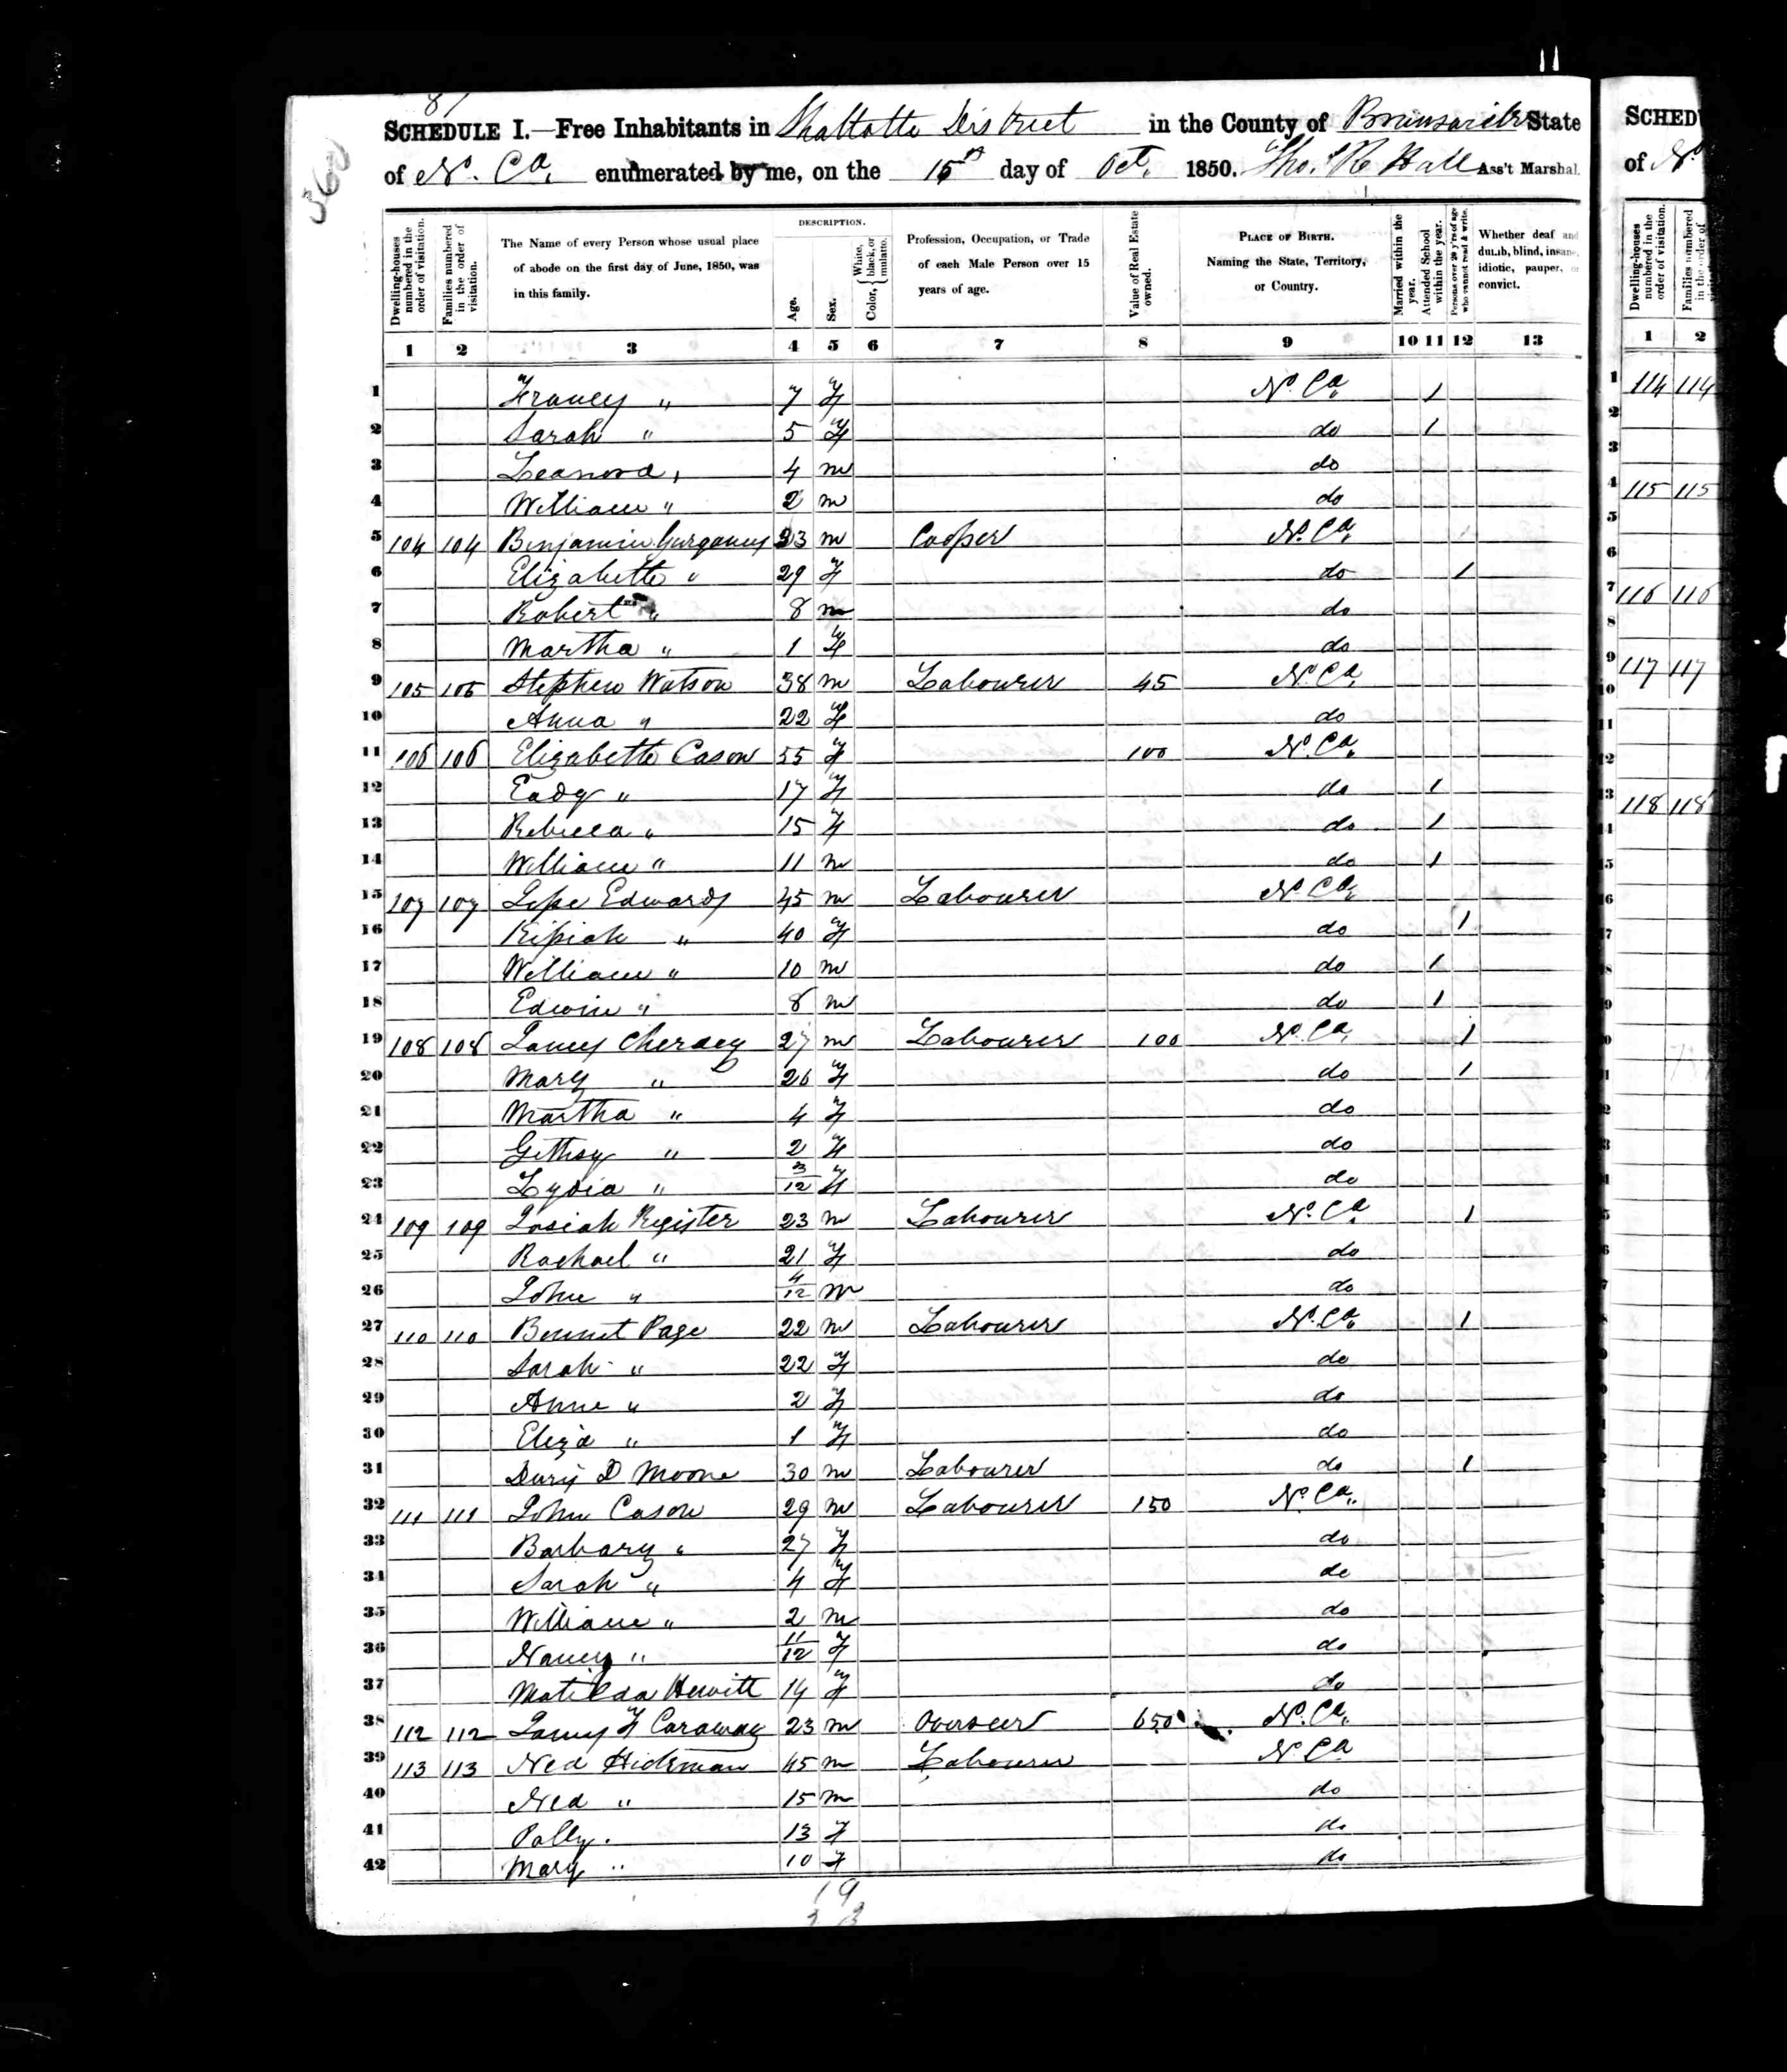 11
81
SCHEDULE I.—Free Inhabitants in Shallotte District in the County of Brunswick State
of N. Ca. enumerated by me, on the 15th day of Oct. 1850. Tho. R Hall Ass't Marshal.
360
Dwelling-houses numbered in the order of visitation.
Families numbered in the order of visitation.
The Name of every Person whose usual place of abode on the first day of June, 1850, was in this family.
DESCRIPTION.
Age.
Sex.
Color, { White, black, or mulatto.
Profession, Occupation, or Trade of each Male Person over 15 years of age.
Value of Real Estate owned.
PLACE OF BIRTH. Naming the State, Territory, or Country.
Married within the year.
Attended School within the year.
Persons over 20 y'rs of age who cannot read & write.
Whether deaf and dumb, blind, insane, idiotic, pauper, or convict.
1 2 3 4 5 6 7 8 9 10 11 12 13
1 Francy " 7 F N. Ca. 1
2 Sarah " 5 F do 1
3 Leanora " 4 m do
4 William " 2 m do
5 104 104 Benjamin Gurganus 33 m Cooper N. Ca.
6 Elizabeth " 29 F do 1
7 Robert " 8 m do
8 Martha " 1 F do
9 105 105 Stephen Watson 38 m Labourer 45 N. Ca.
10 Anna " 22 F do
11 106 106 Elizabeth Cason 55 F 100 N. Ca.
12 Eady " 17 F do 1
13 Rebecca " 15 F do 1
14 William " 11 m do 1
15 107 107 Edwards 45 m Labourer N. Ca.
16 Kipiah " 40 F do 1
17 William " 10 m do 1
18 Edwin " 8 m do 1
19 108 108 James 27 m Labourer 100 N. Ca. 1
20 Mary " 26 F do 1
21 Martha " 4 F do
22 " 2 F do
23 Lydia " 3/12 F do
24 109 109 Josiah Register 23 m Labourer N. Ca. 1
25 Rachael " 21 F do
26 John " 4/12 m do
27 110 110 Bennet Page 22 m Labourer N. Ca. 1
28 Sarah " 22 F do
29 Anne " 2 F do
30 Eliza " 1 F do
31 D Moone 30 m Labourer do 1
32 111 111 John Cason 29 m Labourer 150 N. Ca.
33 Barbary " 27 F do
34 Sarah " 4 F do
35 William " 2 m do
36 Nancy " 11/12 F do
37 Matilda Hewitt 14 F do
38 112 112 James F Caraway 23 m Overseer 650 N. Ca.
39 113 113 Ned Hickman 45 m Labourer N. Ca
40 Ned " 15 m do
41 Polly " 13 F do
42 Mary " 10 F do
19
SCHED
of N.
Dwelling-houses numbered in the order of visitation.
Families numbered in the order of
1 2
114 114
115 115
116 116
117 117
118 118